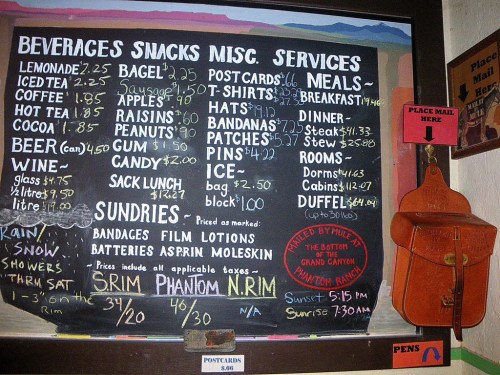 BEVERAGES SNACKS MISC. SERVICES
LEMONADE 2.25
ICED TEA 2.25
COFFEE 1.85
HOT TEA 1.85
COCOA 1.85
BEER (can) 4.50
WINE~
glass $4.75
½ litre $9.50
litre $19.00
BAGEL $2.25
Sausage $1.50
APPLES 90
RAISINS 60
PEANUTS 90
GUM $1.50
CANDY $2.00
SACK LUNCH
$12.27
POSTCARDS .66
T-SHIRTS
HATS $19.12
BANDANAS 7.25
PATCHES 5.27
PINS $4.22
ICE~
bag $2.50
block 1.00
MEALS~
BREAKFAST 19.46
DINNER~
Steak $41.33
Stew $25.80
ROOMS~
Dorms $41.63
Cabins $112.07
DUFFEL $64.04
(up to 30 lbs)
SUNDRIES~ Priced as marked:
BANDAGES FILM LOTIONS
BATTERIES ASPRIN MOLESKIN
~ Prices include all applicable taxes ~
S.RIM PHANTOM N.RIM
34/20 46/30 N/A
RAIN/
SNOW
SHOWERS
THRU SAT
1-3" on the
Rim
MAILED BY MULE AT
THE BOTTOM
OF THE
GRAND CANYON
PHANTOM RANCH
Sunset 5:15 PM
Sunrise 7:30 AM
POSTCARDS
$.66
PLACE MAIL
HERE
Place
Mail
Here
PENS